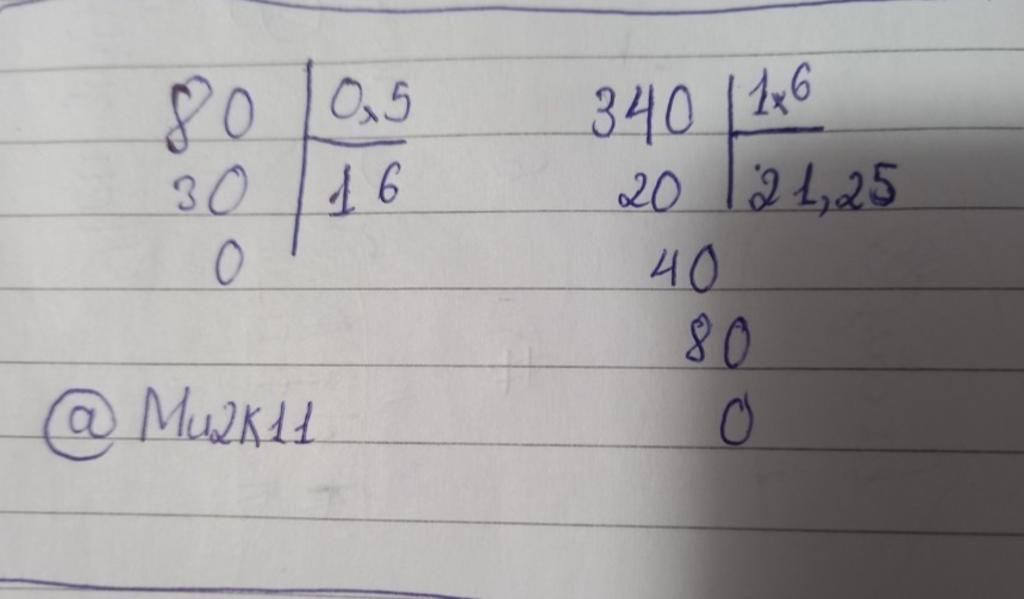 80 0,5
30 16
0
340 1,6
20 21,25
40
80
0
@Mu2K11